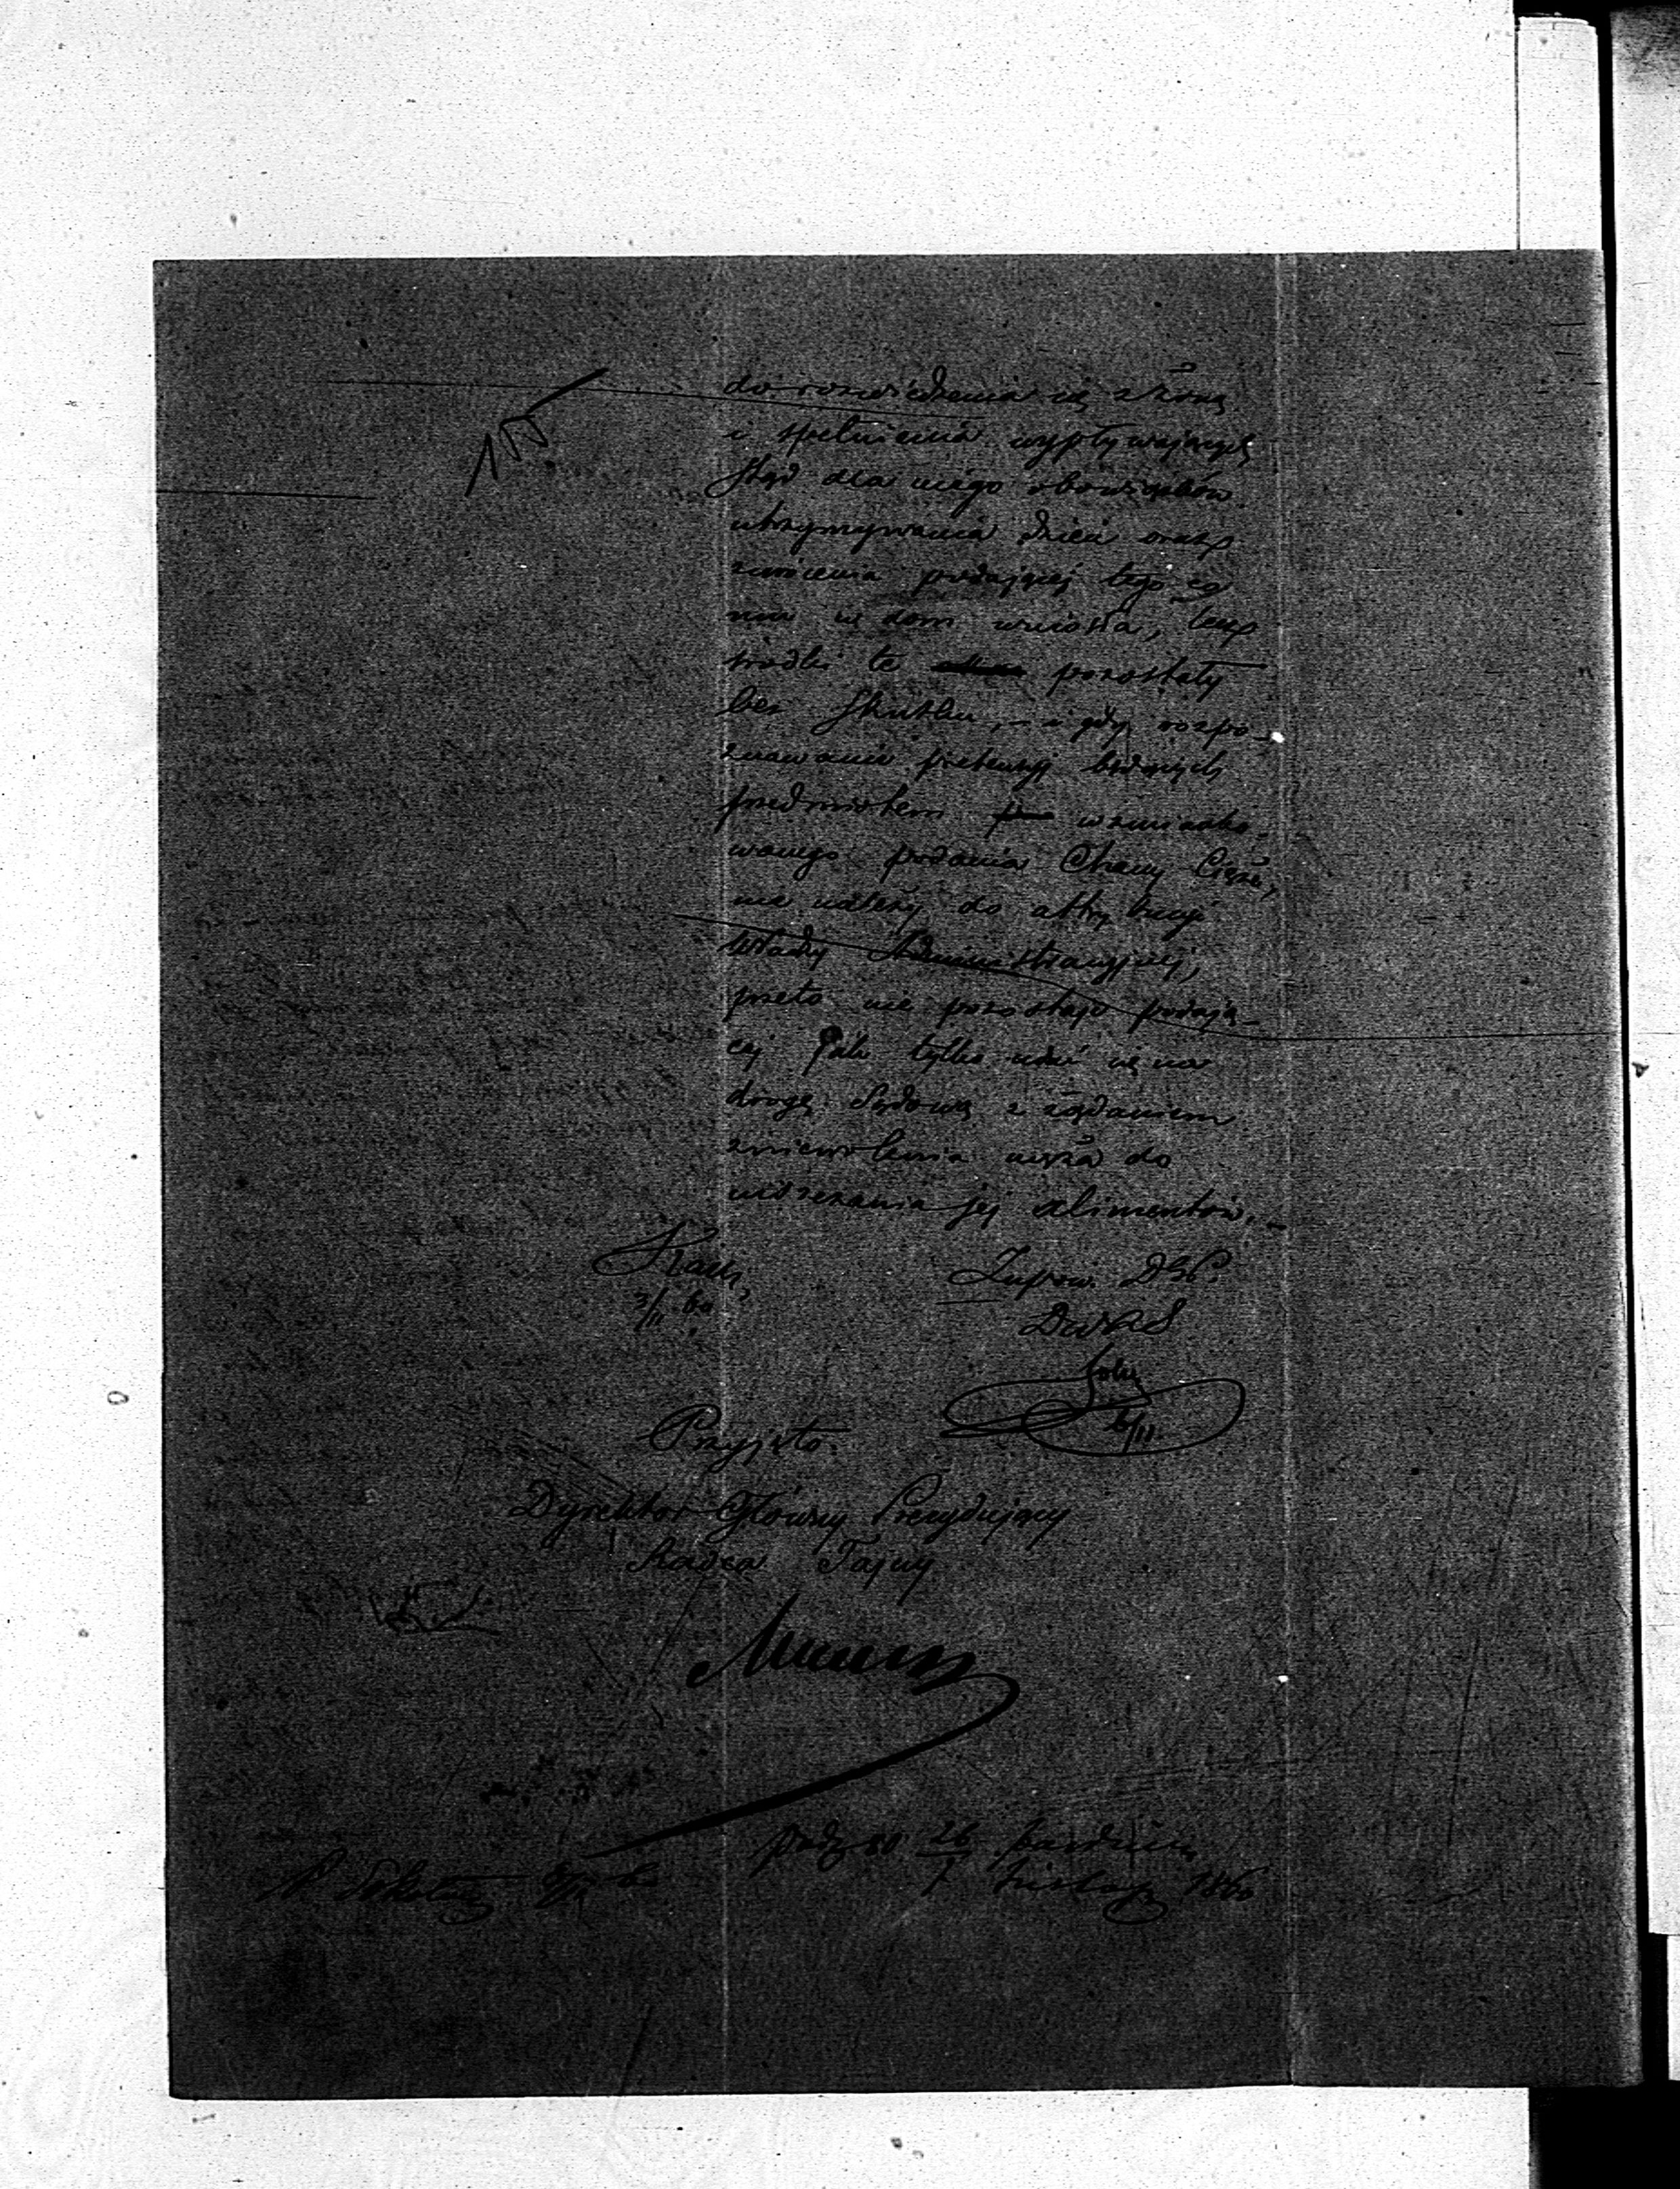 do rozwiedzenia się z żoną
i spełnienia wypływających
stąd dla niego obowiązków
utrzymywania dzieci oraz
zwrócenia podającej tego co
mu w dom wniosła, lecz
środki te pozostały
bez skutku, – i gdy rozpo-
znawanie pretensyj będących
przedmiotem wzmianko-
wanego podania Chany Cięże,
nie należy do attrybucyi
Władzy Administracyjnej,
przeto nie pozostaje podają-
cej jak tylko udać się na
drogę Sądową z żądaniem
zniewolenia męża do
uiszczania jej alimentów. –
3/11 60
Przyjęto.
Dyrektor Główny Prezydujący
Radca Tajny
26 październ
7 listop 1860